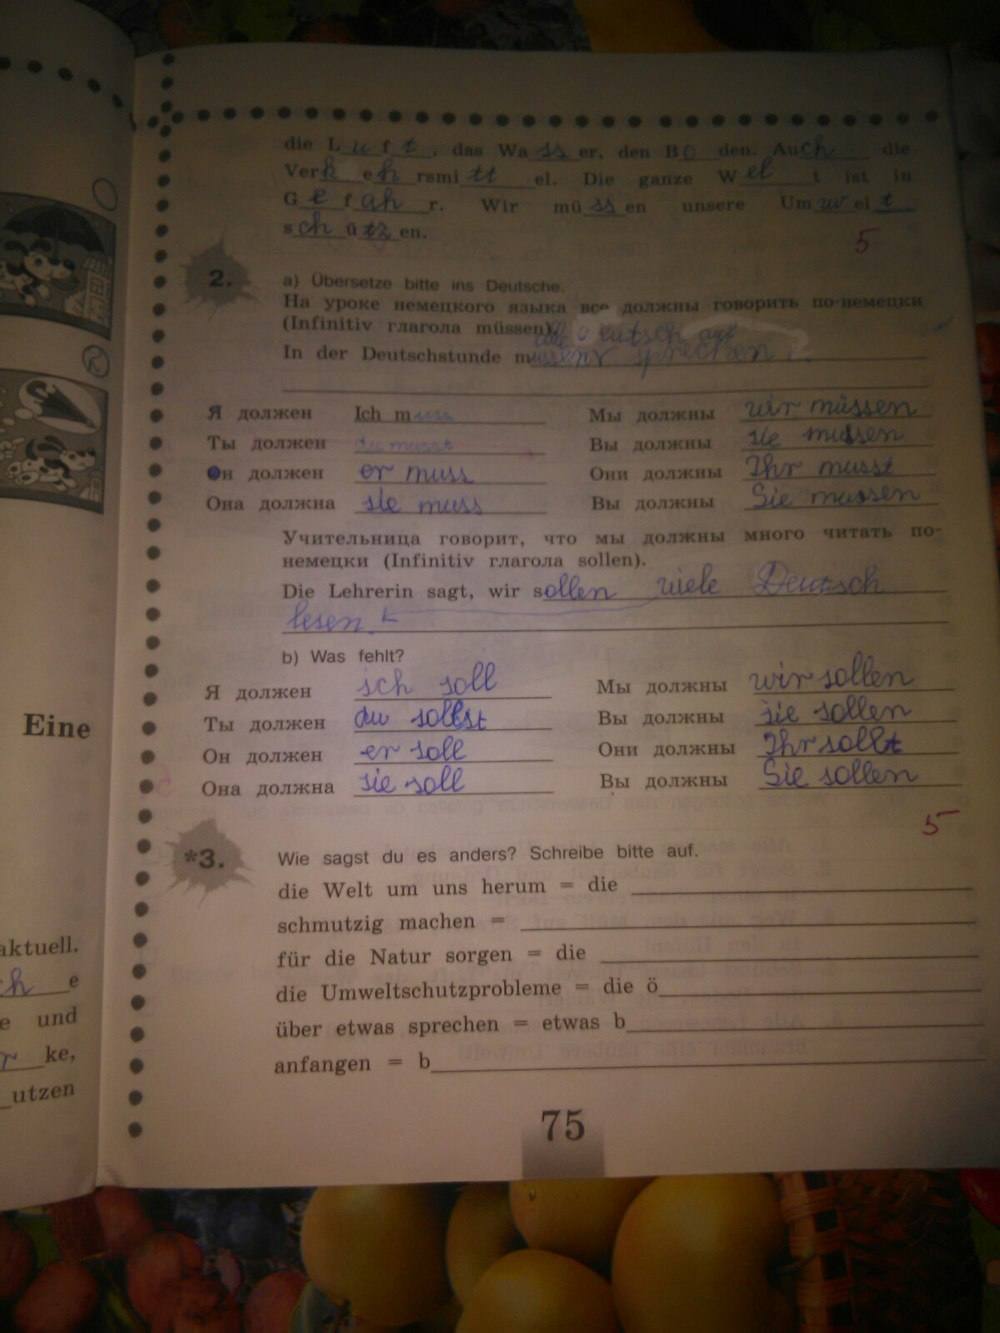 die Luft, das Wasser, den Boden. Auch die
Verkehrsmittel. Die ganze Welt ist in
Gefahr. Wir müssen unsere Umwelt
schützen.
5
2.
a) Übersetze bitte ins Deutsche.
На уроке немецкого языка все должны говорить по-немецки
(Infinitiv глагола müssen).
In der Deutschstunde sprechen
Я должен Ich muss Мы должны wir müssen
Ты должен du musst Вы должны sie müssen
Он должен er muss Они должны Ihr musst
Она должна sie muss Вы должны Sie mussen
Учительница говорит, что мы должны много читать по-
немецки (Infinitiv глагола sollen).
Die Lehrerin sagt, wir sollen viele Deutsch
lesen.
b) Was fehlt?
Я должен ich soll Мы должны wir sollen
Ты должен du sollst Вы должны sie sollen
Он должен er soll Они должны Ihr sollt
Она должна sie soll Вы должны Sie sollen
5
*3.
Wie sagst du es anders? Schreibe bitte auf.
die Welt um uns herum = die
schmutzig machen =
für die Natur sorgen = die
die Umweltschutzprobleme = die ö
über etwas sprechen = etwas b
anfangen = b
75
Eine
aktuell.
ch e
e und
r ke,
utzen